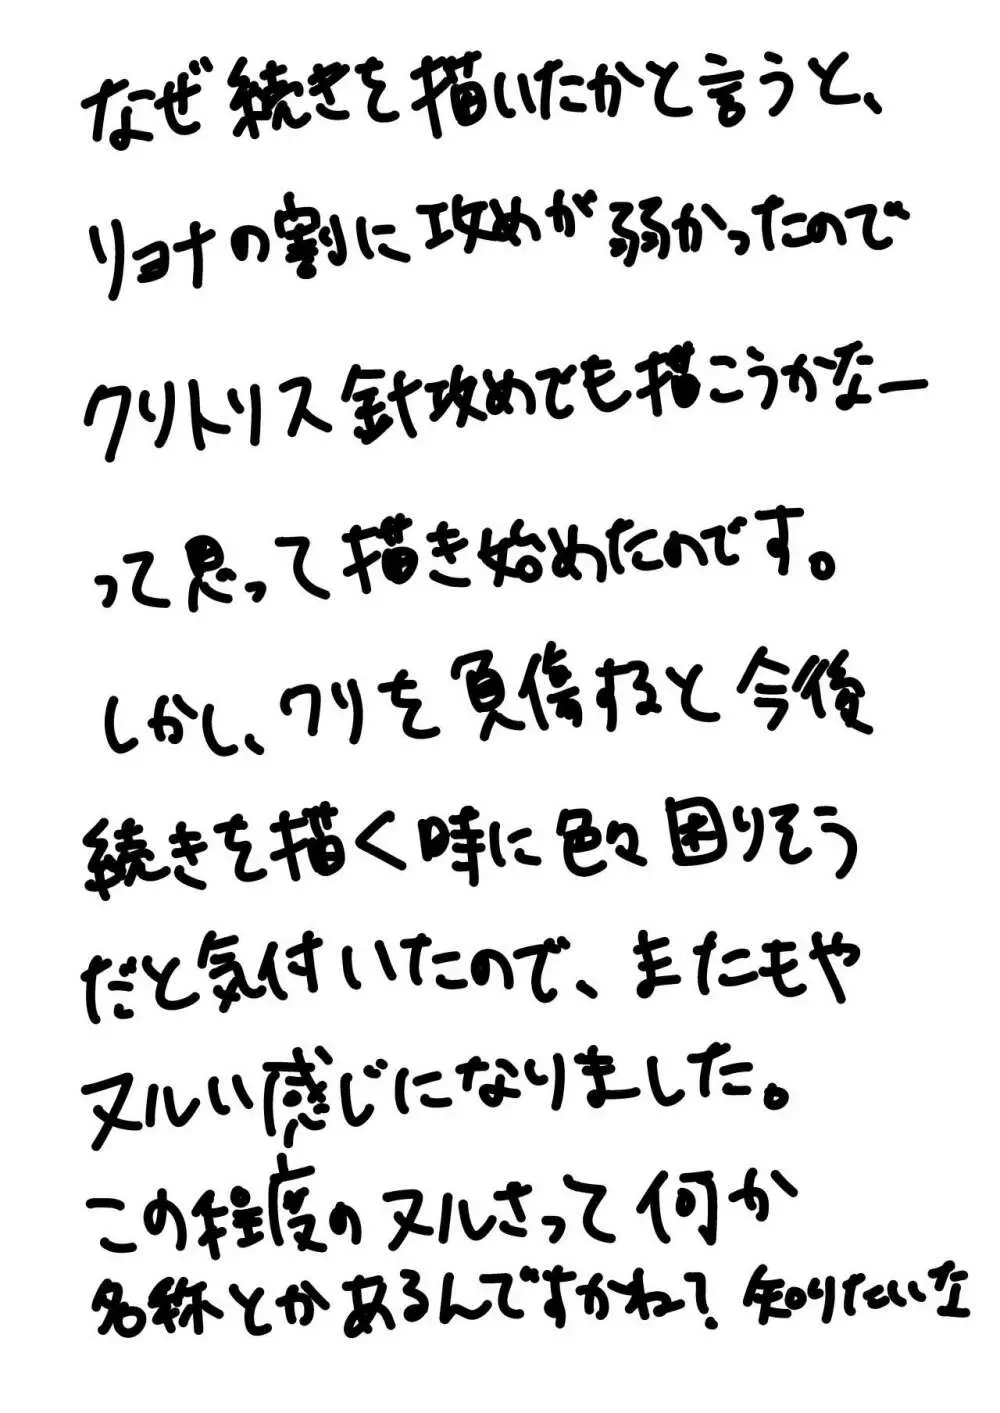 なぜ続きを描いたかと言うと、
リョナの割に攻めが弱かったので
クリトリス針攻めでも描こうかなー
って思って描き始めたのです。
しかし、クリを負傷すると今後
続きを描く時に色々困りそう
だと気付いたので、またもや
ヌルい感じになりました。
この程度のヌルさって何か
名称とかあるんですかね?知りたいな